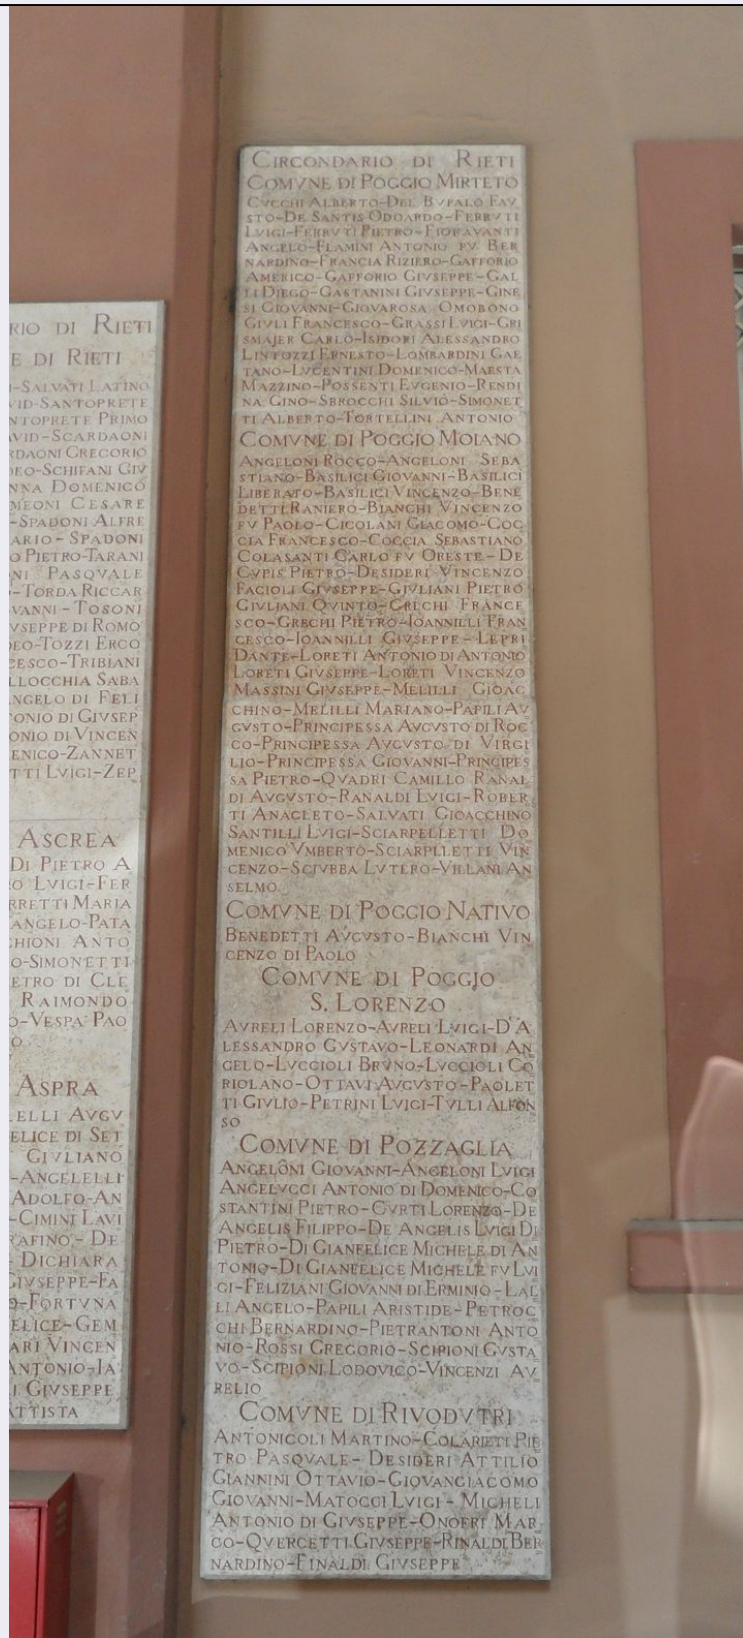 RIO DI RIETI
E DI RIETI
-SALVATI LATINO
VID-SANTOPRETE
NTOPRETE PRIMO
AVID-SCARDAONI
RDAONI GREGORIO
DEO-SCHIFANI GIV
NNA DOMENICO
MEONI CESARE
-SPADONI ALFRE
ARIO-SPADONI
O PIETRO-TARANI
NI PASQVALE
-TORDA RICCAR
VANNI-TOSONI
VSEPPE DI ROMO
DEO-TOZZI ERCO
CESCO-TRIBIANI
LLOCCHIA SABA
NGELO DI FELI
TONIO DI GIVSEP
ONIO DI VINCEN
ENICO-ZANNET
TTI LVIGI-ZEP
ASCREA
DI PIETRO A
O LVIGI-FER
RRETTI MARIA
ANGELO-PATA
CHIONI ANTO
O-SIMONETTI
ETRO DI CLE
RAIMONDO
O-VESPA PAO
O
ASPRA
LELLI AVGV
ELICE DI SET
GIVLIANO
-ANGELELLI
ADOLFO-AN
-CIMINI LAVI
AFINO-DE
DICHIARA
GIVSEPPE-FA
O-FORTVNA
ELICE-GEM
ARI VINCEN
ANTONIO-IA
I GIVSEPPE
ATTISTA
CIRCONDARIO DI RIETI
COMVNE DI POGGIO MIRTETO
CVCCHI ALBERTO-DEL BVFALO FAV
STO-DE SANTIS ODOARDO-FERRVTI
LVIGI-FERRVTI PIETRO-FIORAVANTI
ANGELO-FLAMINI ANTONIO FV BER
NARDINO-FRANCIA RIZIERO-GAFFORIO
AMERICO-GAFFORIO GIVSEPPE-GAL
LI DIEGO-GASTANINI GIVSEPPE-GINE
SI GIOVANNI-GIOVAROSA OMOBONO
GIVLI FRANCESCO-GRASSI LVIGI-GRI
SMAJER CARLO-ISIDORI ALESSANDRO
LINTOZZI ERNESTO-LOMBARDINI GAE
TANO-LVCENTINI DOMENICO-MAESTA
MAZZINO-POSSENTI EVGENIO-RENDI
NA GINO-SBROCCHI SILVIO-SIMONET
TI ALBERTO-TORTELLINI ANTONIO
COMVNE DI POGGIO MOIANO
ANGELONI ROCCO-ANGELONI SEBA
STIANO-BASILICI GIOVANNI-BASILICI
LIBERATO-BASILICI VINCENZO-BENE
DETTI RANIERO-BIANCHI VINCENZO
FV PAOLO-CICOLANI GIACOMO-COC
CIA FRANCESCO-COCCIA SEBASTIANO
COLASANTI CARLO FV ORESTE-DE
CVPIS PIETRO-DESIDERI VINCENZO
FACIOLI GIVSEPPE-GIVLIANI PIETRO
GIVLIANI QVINTO-GRECHI FRANCE
SCO-GRECHI PIETRO-IOANNILLI FRAN
CESCO-IOANNILLI GIVSEPPE-LEPRI
DANTE-LORETI ANTONIO DI ANTONIO
LORETI GIVSEPPE-LORETI VINCENZO
MASSINI GIVSEPPE-MELILLI GIOAC
CHINO-MELILLI MARIANO-PAPILI AV
GVSTO-PRINCIPESSA AVGVSTO DI ROC
CO-PRINCIPESSA AVGVSTO DI VIRGI
LIO-PRINCIPESSA GIOVANNI-PRINCIPES
SA PIETRO-QVADRI CAMILLO RANAL
DI AVGVSTO-RANALDI LVIGI-ROBER
TI ANACLETO-SALVATI GIOACCHINO
SANTILLI LVIGI-SCIARPELLETTI DO
MENICO VMBERTO-SCIARPLLETTI VIN
CENZO-SCIVBBA LVTERO-VILLANI AN
SELMO
COMVNE DI POGGIO NATIVO
BENEDETTI AVGVSTO-BIANCHI VIN
CENZO DI PAOLO
COMVNE DI POGGIO
S. LORENZO
AVRELI LORENZO-AVRELI LVIGI-D'A
LESSANDRO GVSTAVO-LEONARDI AN
GELO-LVCCIOLI BRVNO-LVCCIOLI CO
RIOLANO-OTTAVI AVGVSTO-PAOLET
TI GIVLIO-PETRINI LVIGI-TVLLI ALFON
SO
COMVNE DI POZZAGLIA
ANGELONI GIOVANNI-ANGELONI LVIGI
ANGELVCCI ANTONIO DI DOMENICO-CO
STANTINI PIETRO-CVRTI LORENZO-DE
ANGELIS FILIPPO-DE ANGELIS LVIGI DI
PIETRO-DI GIANFELICE MICHELE DI AN
TONIO-DI GIANFELICE MICHELE FV LVI
GI-FELIZIANI GIOVANNI DI ERMINIO-LAL
LI ANGELO-PAPILI ARISTIDE-PETROC
CHI BERNARDINO-PIETRANTONI ANTO
NIO-ROSSI GREGORIO-SCIPIONI GVSTA
VO-SCIPIONI LODOVICO-VINCENZI AV
RELIO
COMVNE DI RIVODVTRI
ANTONICOLI MARTINO-COLARIETI PIE
TRO PASQVALE-DESIDERI ATTILIO
GIANNINI OTTAVIO-GIOVANGIACOMO
GIOVANNI-MATOCCI LVIGI-MICHELI
ANTONIO DI GIVSEPPE-ONOFRI MAR
CO-QVERCETTI GIVSEPPE-RINALDI BER
NARDINO-FINALDI GIVSEPPE